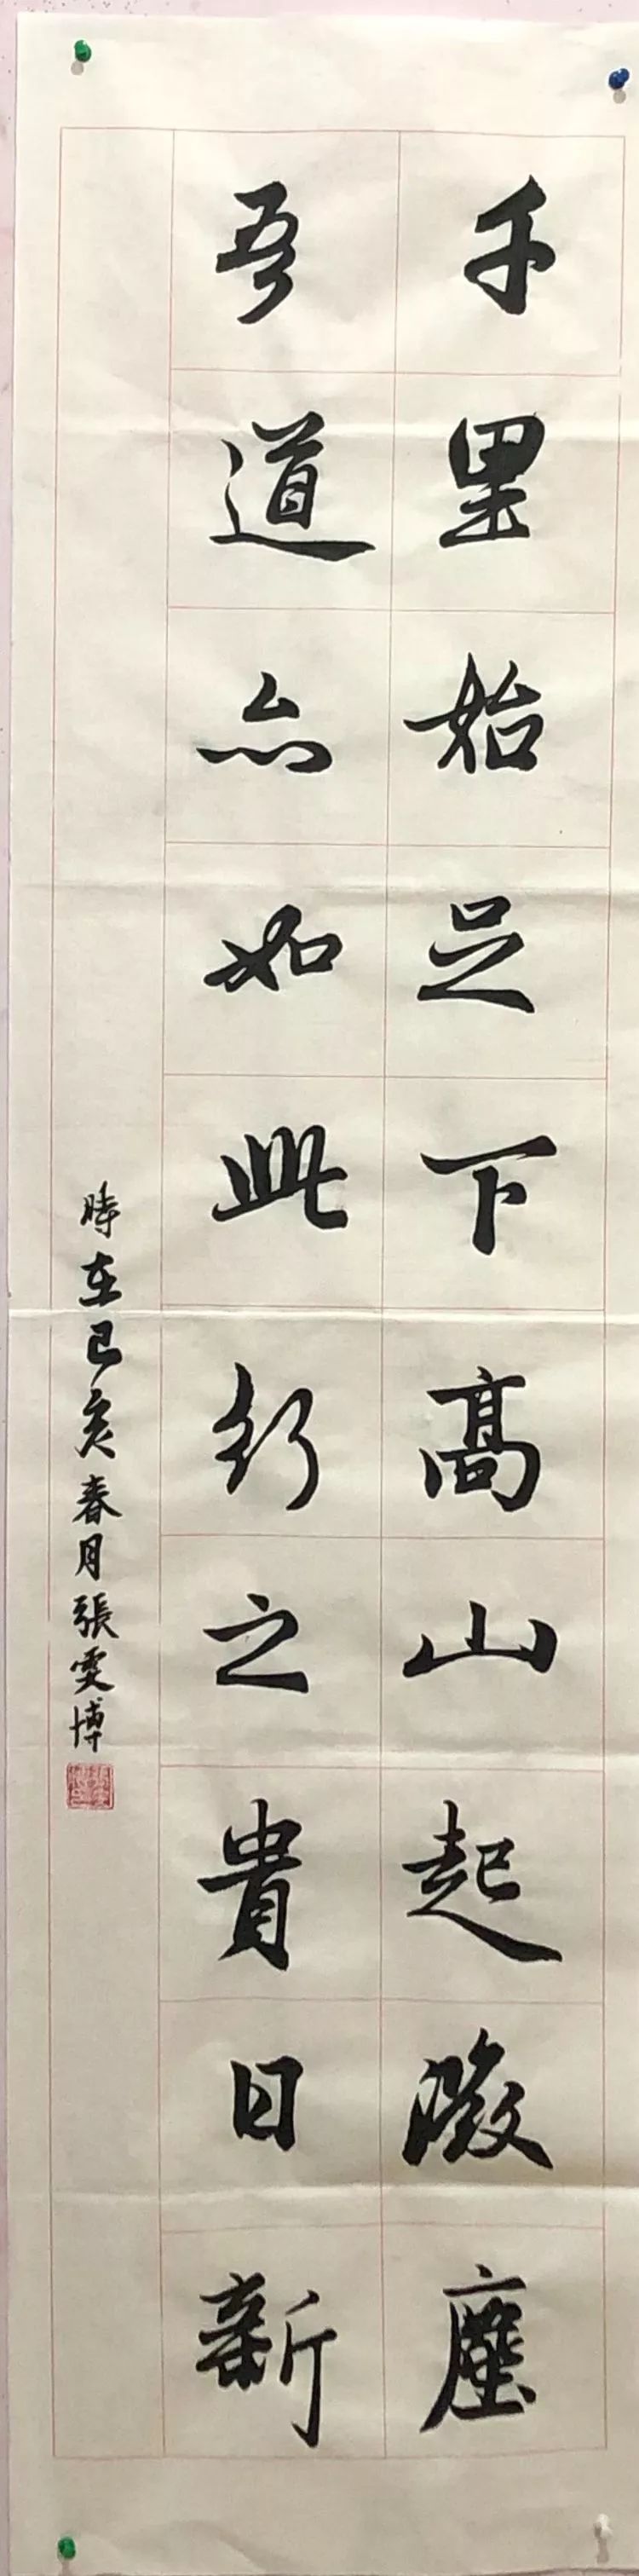 千里始足下高山起微塵
吾道亦如此行之貴日新
時在己亥春月張雯博